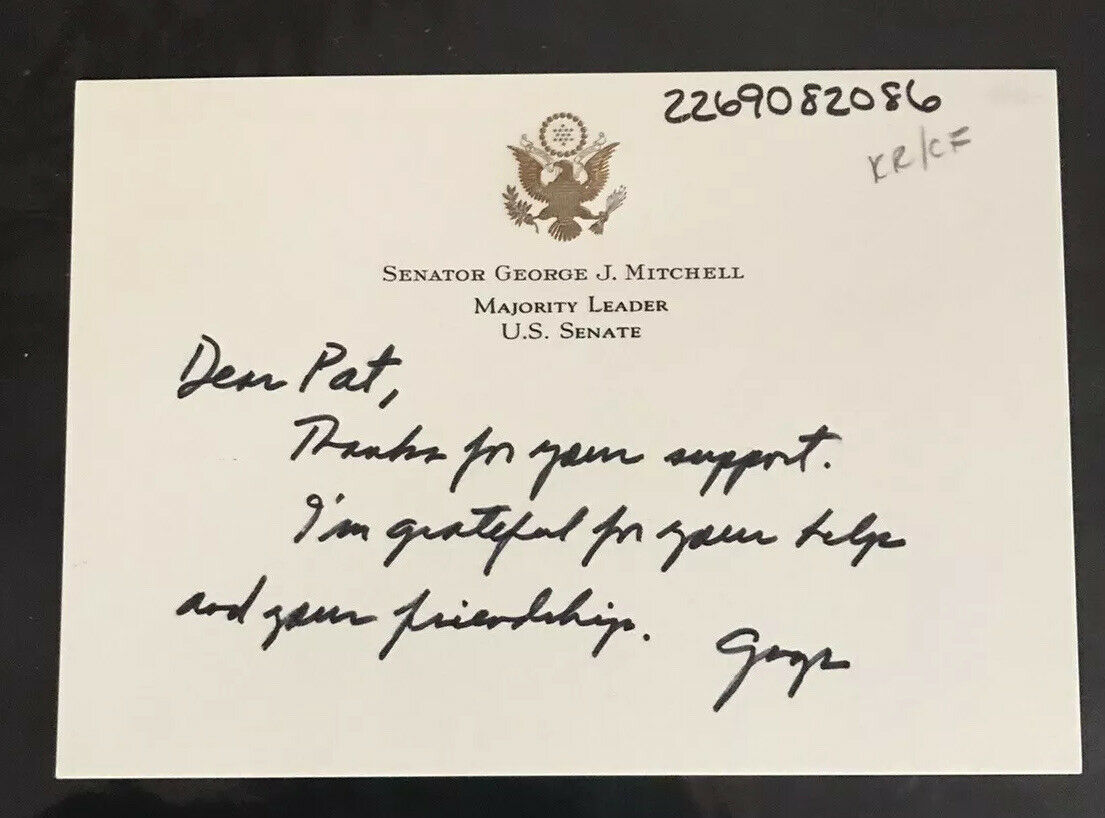 2269082086
KR/CF
SENATOR GEORGE J. MITCHELL
MAJORITY LEADER
U.S. SENATE
Dear Pat,
Thanks for your support.
I'm grateful for your help
and your friendship.
George